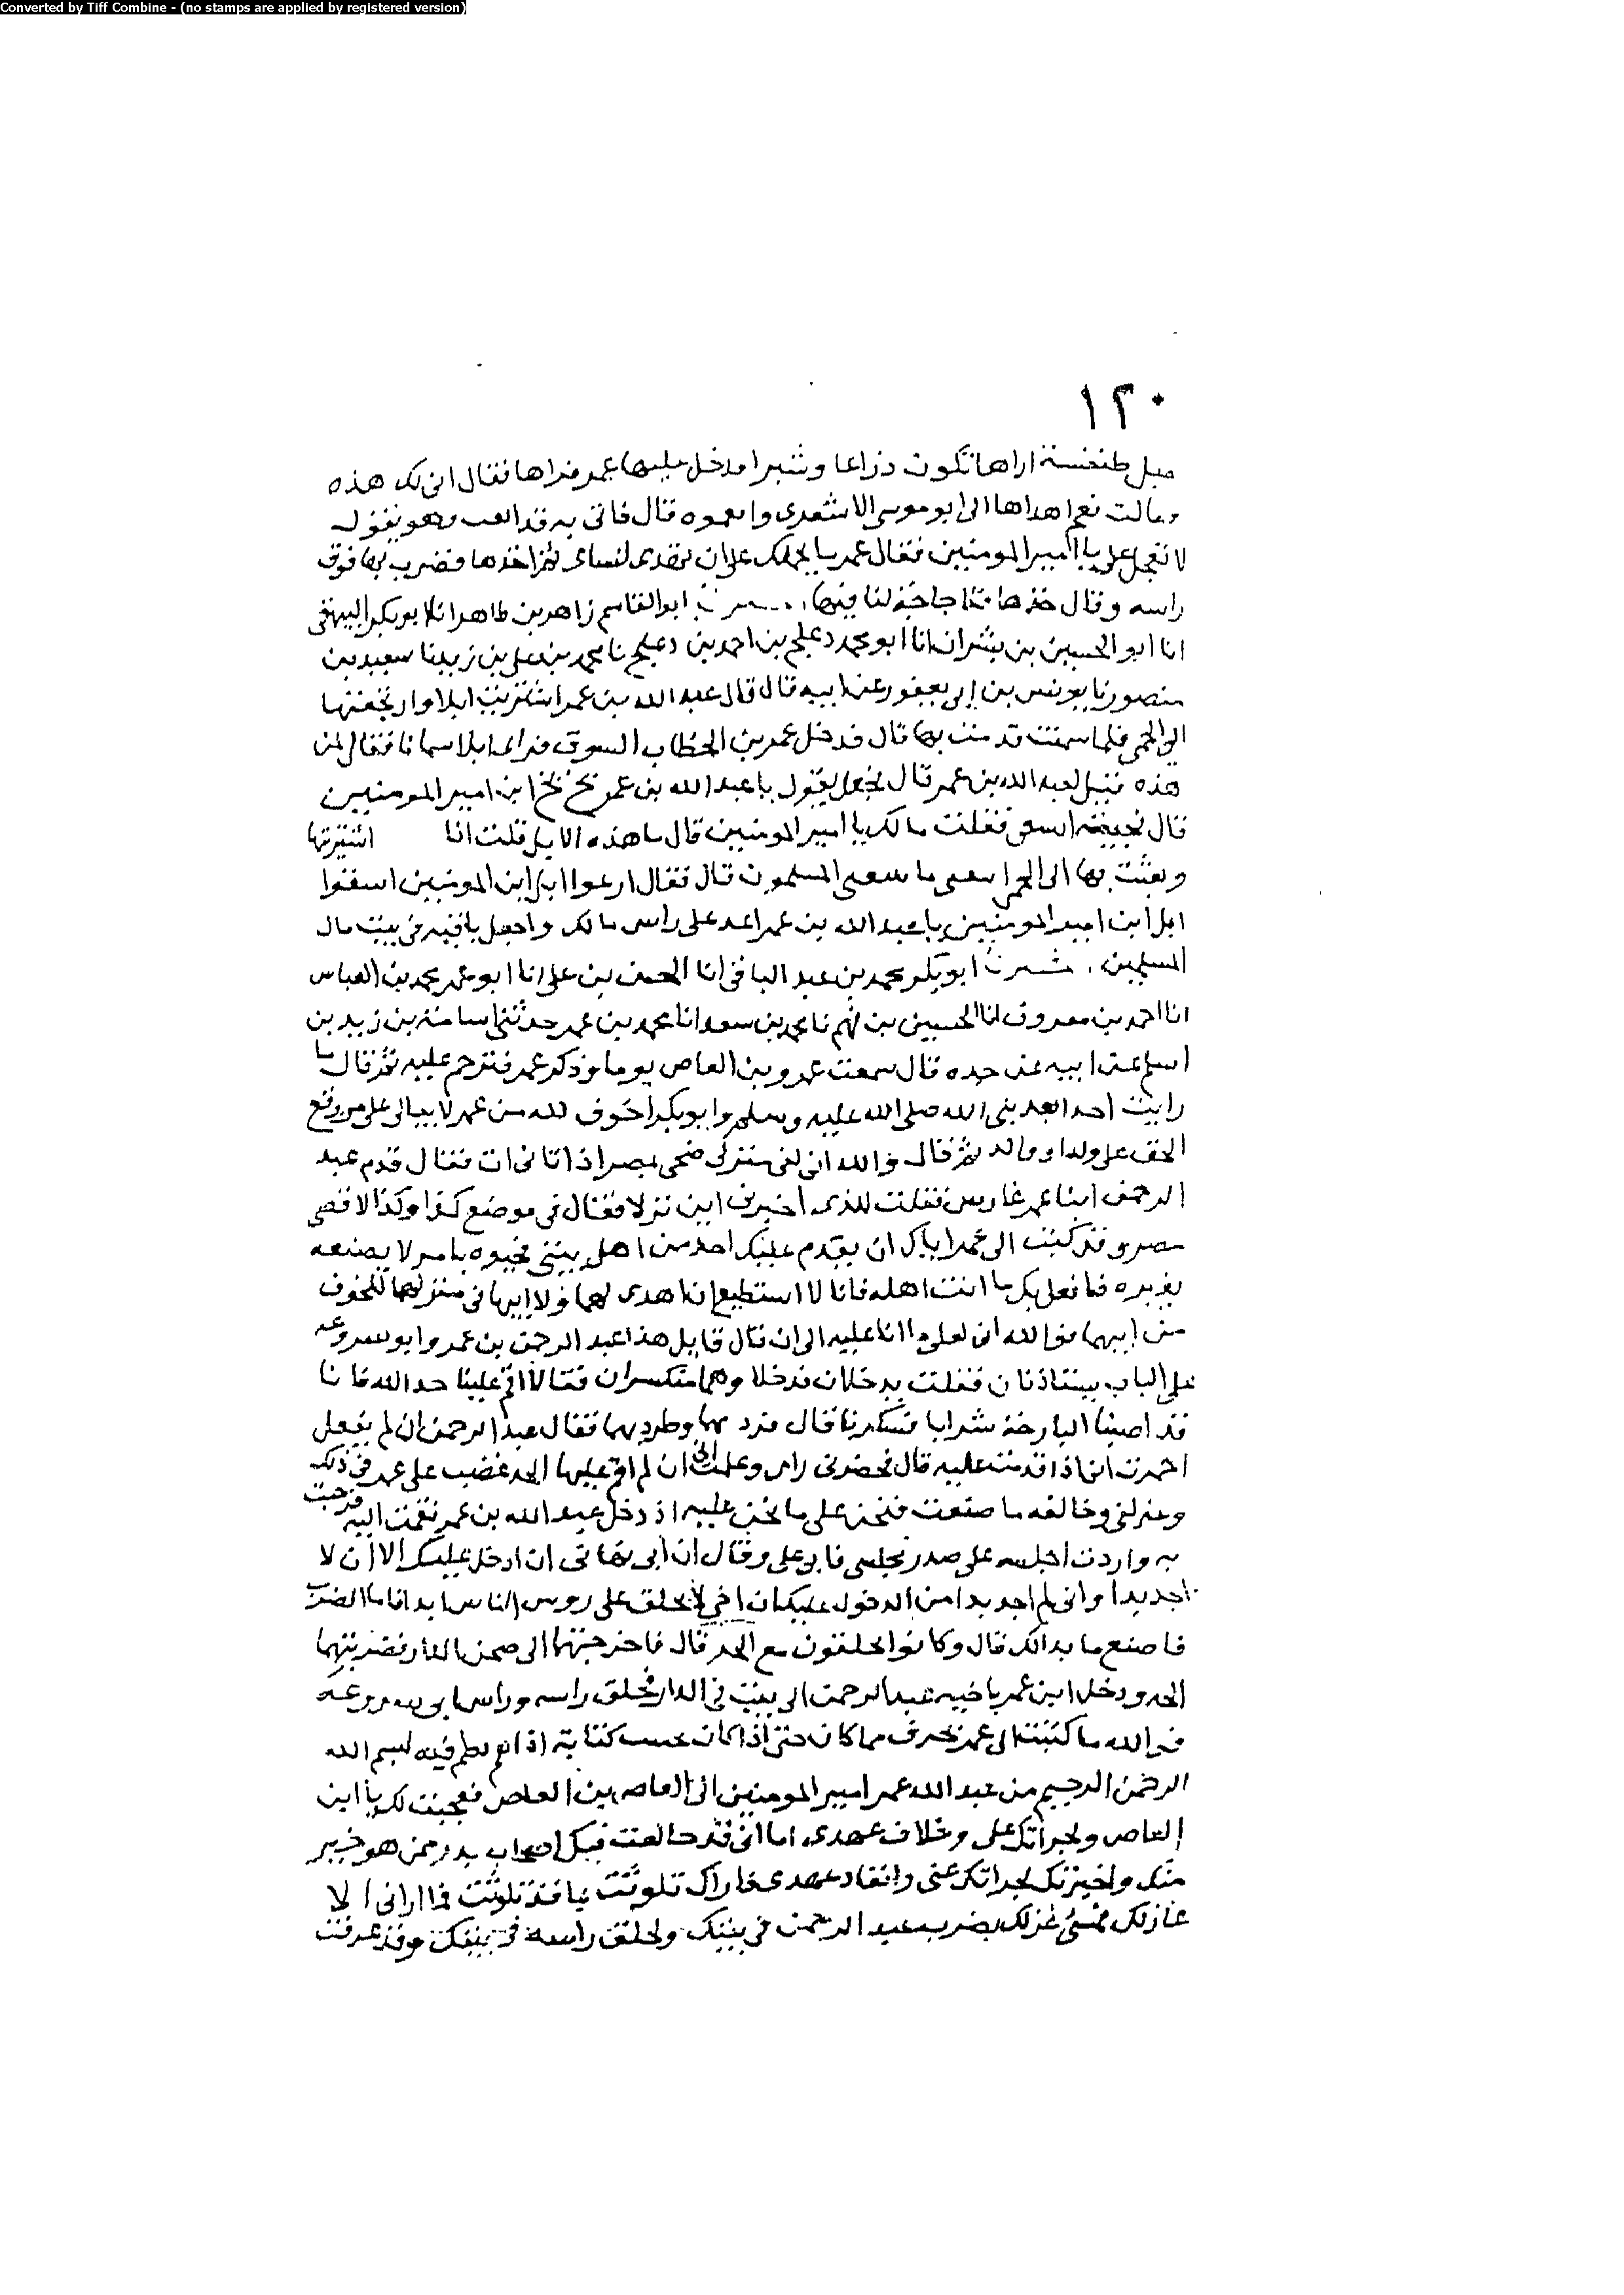 Converted by Tiff Combine - (no stamps are applied by registered version)
١٢٠
طنفسة اراها تكون ذراعا وشبرا فدخل عليها عمر فراها فقال انى لك هذه
فقالت نعم اهداها الى ابو موسى الاشعرى قال فاتى به قد اتعب وهو يقول
لا تعجل على يا امير المومنين فقال عمر ما يحملك على ان تهدى لنساى ثم اخذها فضرب بها فوق
راسه وقال خذها فلا حاجة لنا فيها ابو القاسم زاهر بن طاهر انا ابو بكر البيهقى
انا ابو الحسين بن بشران انا ابو محمد دعلج بن احمد بن دعلج نا محمد بن على بن زيد نا سعيد بن
منصور نا يونس بن ابى يعفور عن ابيه قال قال عبد الله بن عمر اشتريت ابلا وارتجعتها
الى الحمى فلما سمنت قدمت بها قال فدخل عمر بن الخطاب السوق فراى ابلا سمانا فقال لمن
هذه فقيل لعبد الله بن عمر قال فجعل يقول يا عبد الله بن عمر بخ بخ ابن امير المومنين
قال فجيته اسعى فقلت ما لك يا امير المومنين قال ما هذه الابل قلت انا اشتريتها
وبعثت بها الى الحمى ما يبتغى المسلمون قال فقال ارعوا ابل ابن امير المومنين اسقوا
ابل ابن امير المومنين يا عبد الله بن عمر اغد على راس مالك واجعل باقيه فى بيت مال
المسلمين ابو بكر محمد بن عبد الباقى انا الحسن بن على انا ابو عمر محمد بن العباس
انا احمد بن معروف انا الحسين بن فهم نا محمد بن سعد انا محمد بن عمر حدثنى اسامة بن زيد بن
اسلم عن ابيه عن جده قال سمعت عمرو بن العاص يوما وذكر عمر فترحم عليه ثم قال ما
رايت احدا بعد نبى الله صلى الله عليه وسلم وابو بكر اخوف لله من عمر لا يبالى على من وقع
الحق على ولد او والد ثم قال والله انى لفى منزلى ضحى بمصر اذ اتانى ات فقال قدم عبد
الرحمن ابنا عمر غازيين فقلت للذى اخبرنى اين نزلا فقال فى موضع كذا وكذا لاقصى
مصر وقد كتب الى عمر اياك ان يقدم عليك احد من اهل بيتى فتحبوه بامر لا تصنعه
بغيره فافعل بك ما انت اهله فانا لا استطيع ان اهدى لهما ولا اتيهما فى منزلهما للخوف
من ابيهما فوالله انى لعلى ما انا عليه الى ان قال قايل هذا عبد الرحمن بن عمر وابو سروعه
على الباب يستاذنان فقلت يدخلان فدخلا وهما منكسران فقالا اقم علينا حد الله فانا
قد اصبنا البارحة شرابا فسكرنا قال فزبرتهما وطردتهما فقال عبد الرحمن ان لم تفعل
اخبرت ابى اذا قدمت عليه قال فحضرنى راى وعلمت انى ان لم اقم عليهما الحد غضب على عمر فى ذلك
وعزلنى وخالفه ما صنعت فنحن على ما نحن عليه اذ دخل عبد الله بن عمر فقمت اليه فرحبت
به واردت اجلسه على صدر مجلسى فابى على وقال ان ابى نهانى ان ادخل عليك الا ان لا
اجد بدا وانى لم اجد بدا من الدخول عليك ان اخى لا يحلق على روس الناس ابدا فاما الضرب
فاصنع ما بدا لك قال وكانوا يحلقون مع الحد قال فاخرجتهما الى صحن الدار فضربتهما
الحد ودخل ابن عمر باخيه عبد الرحمن الى بيت فى الدار فحلق راسه وراس ابى سروعه
فوالله ما كتبت الى عمر بحرف مما كان حتى اذا كان كتابه اذا هو نظم فيه بسم الله
الرحمن الرحيم من عبد الله عمر امير المومنين الى العاصى بن العاص فعجبت لك يا ابن
العاص ولجراتك على وخلاف عهدى اما انى قد خالفت فيك اصحاب بدر ممن هو خير
منك واخترتك لجراتك عنى وانفاذ عهدى فاراك تلوثت بما قد تلوثت فما ارانى الا
عازلك فمسىء عزلك تضرب عبد الرحمن فى بيتك وتحلق راسه فى بيتك وقد عرفت